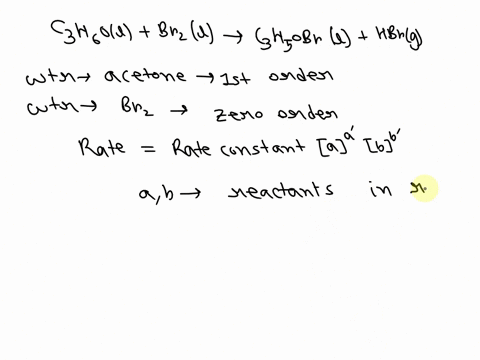 C₃H₆O(l) + Br₂(l) → C₃H₅OBr(l) + HBr(g)
wtr → acetone → 1st order
wtr → Br₂ → zero order
Rate = Rate constant [a]^a' [b]^b'
a,b → reactants in r